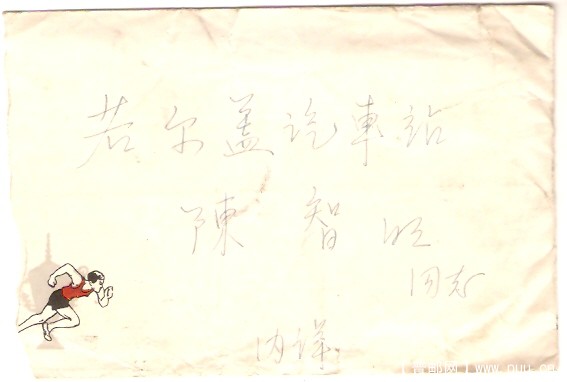 若尔盖汽車站
陳智明
同志
内详